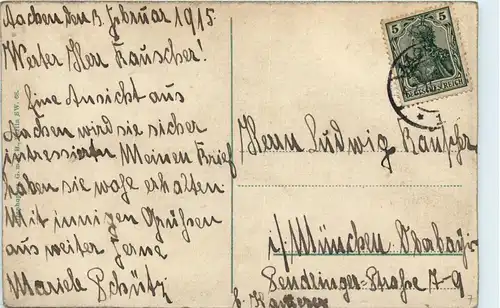 Aachen den 3. Februar 1915.
Werter Herr Rauscher!
Eine Ansicht aus
Aachen wird sie sicher
intressieren Meinen Brief
haben sie wohl erhalten
Mit innigen Grüßen
aus weiter Ferne
Mariele Schütz
5 5
DEUTSCHES REICH
Herrn Ludwig
i/ München Oberbayr.
Pendlinger-Straße 7-9
b.